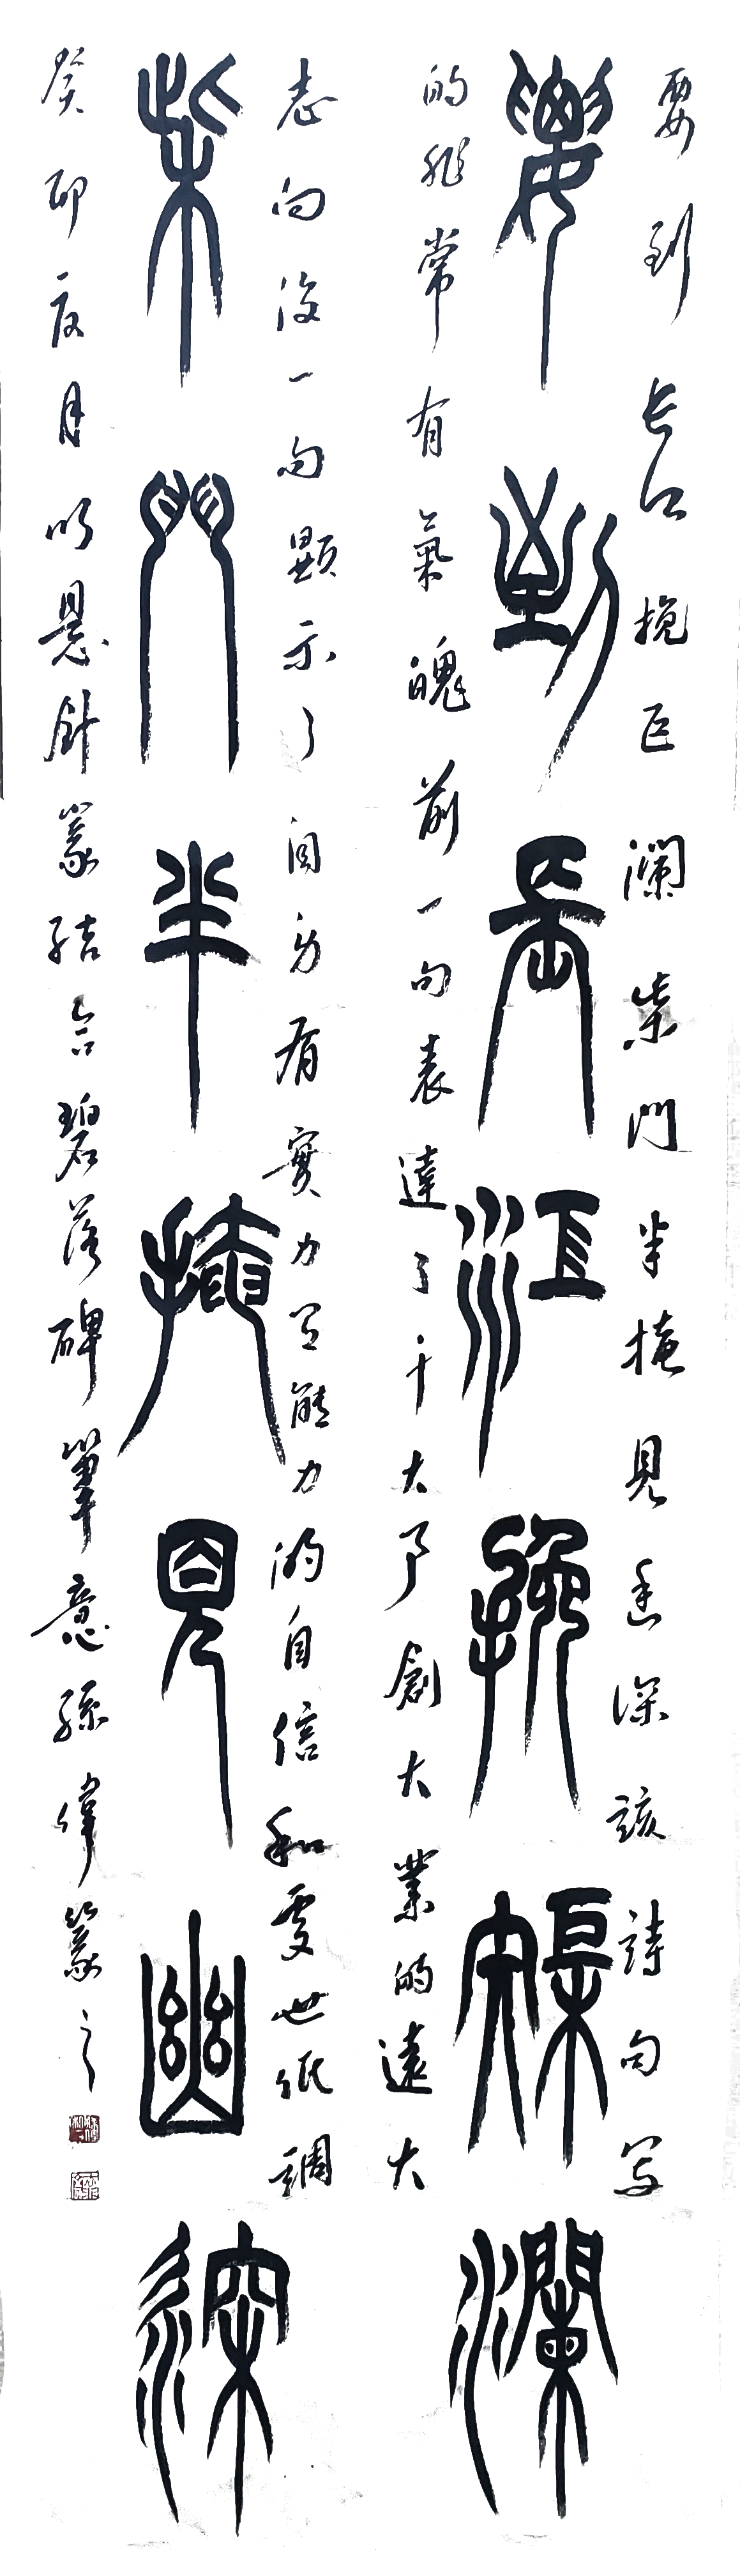 要到长江挽巨瀾柴門半掩見幽深該詩句写
要到長江挽榘瀾
的非常有氣魄前一句表達了干大事創大業的遠大
志向後一句顯示了自身有實力且能力的自信和處世低調
柴門半掩見幽深
癸卯夏月以懸針篆結合碧落碑筆意孫偉篆之